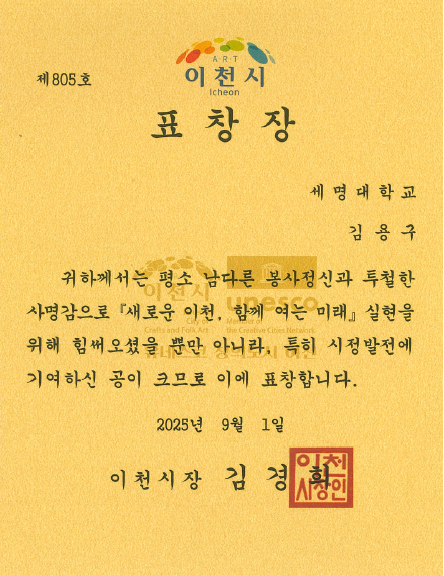 ART
이천시
Icheon
제805호
표창장
세명대학교
김용구
귀하께서는 평소 남다른 봉사정신과 투철한
사명감으로 『새로운 이천, 함께 여는 미래』 실현을
위해 힘써오셨을 뿐만 아니라, 특히 시정발전에
기여하신 공이 크므로 이에 표창합니다.
이천시
unesco
Crafts and Folk Art
the Creative Cities Network
2025년 9월 1일
이천시장 김경희
이천
시장인